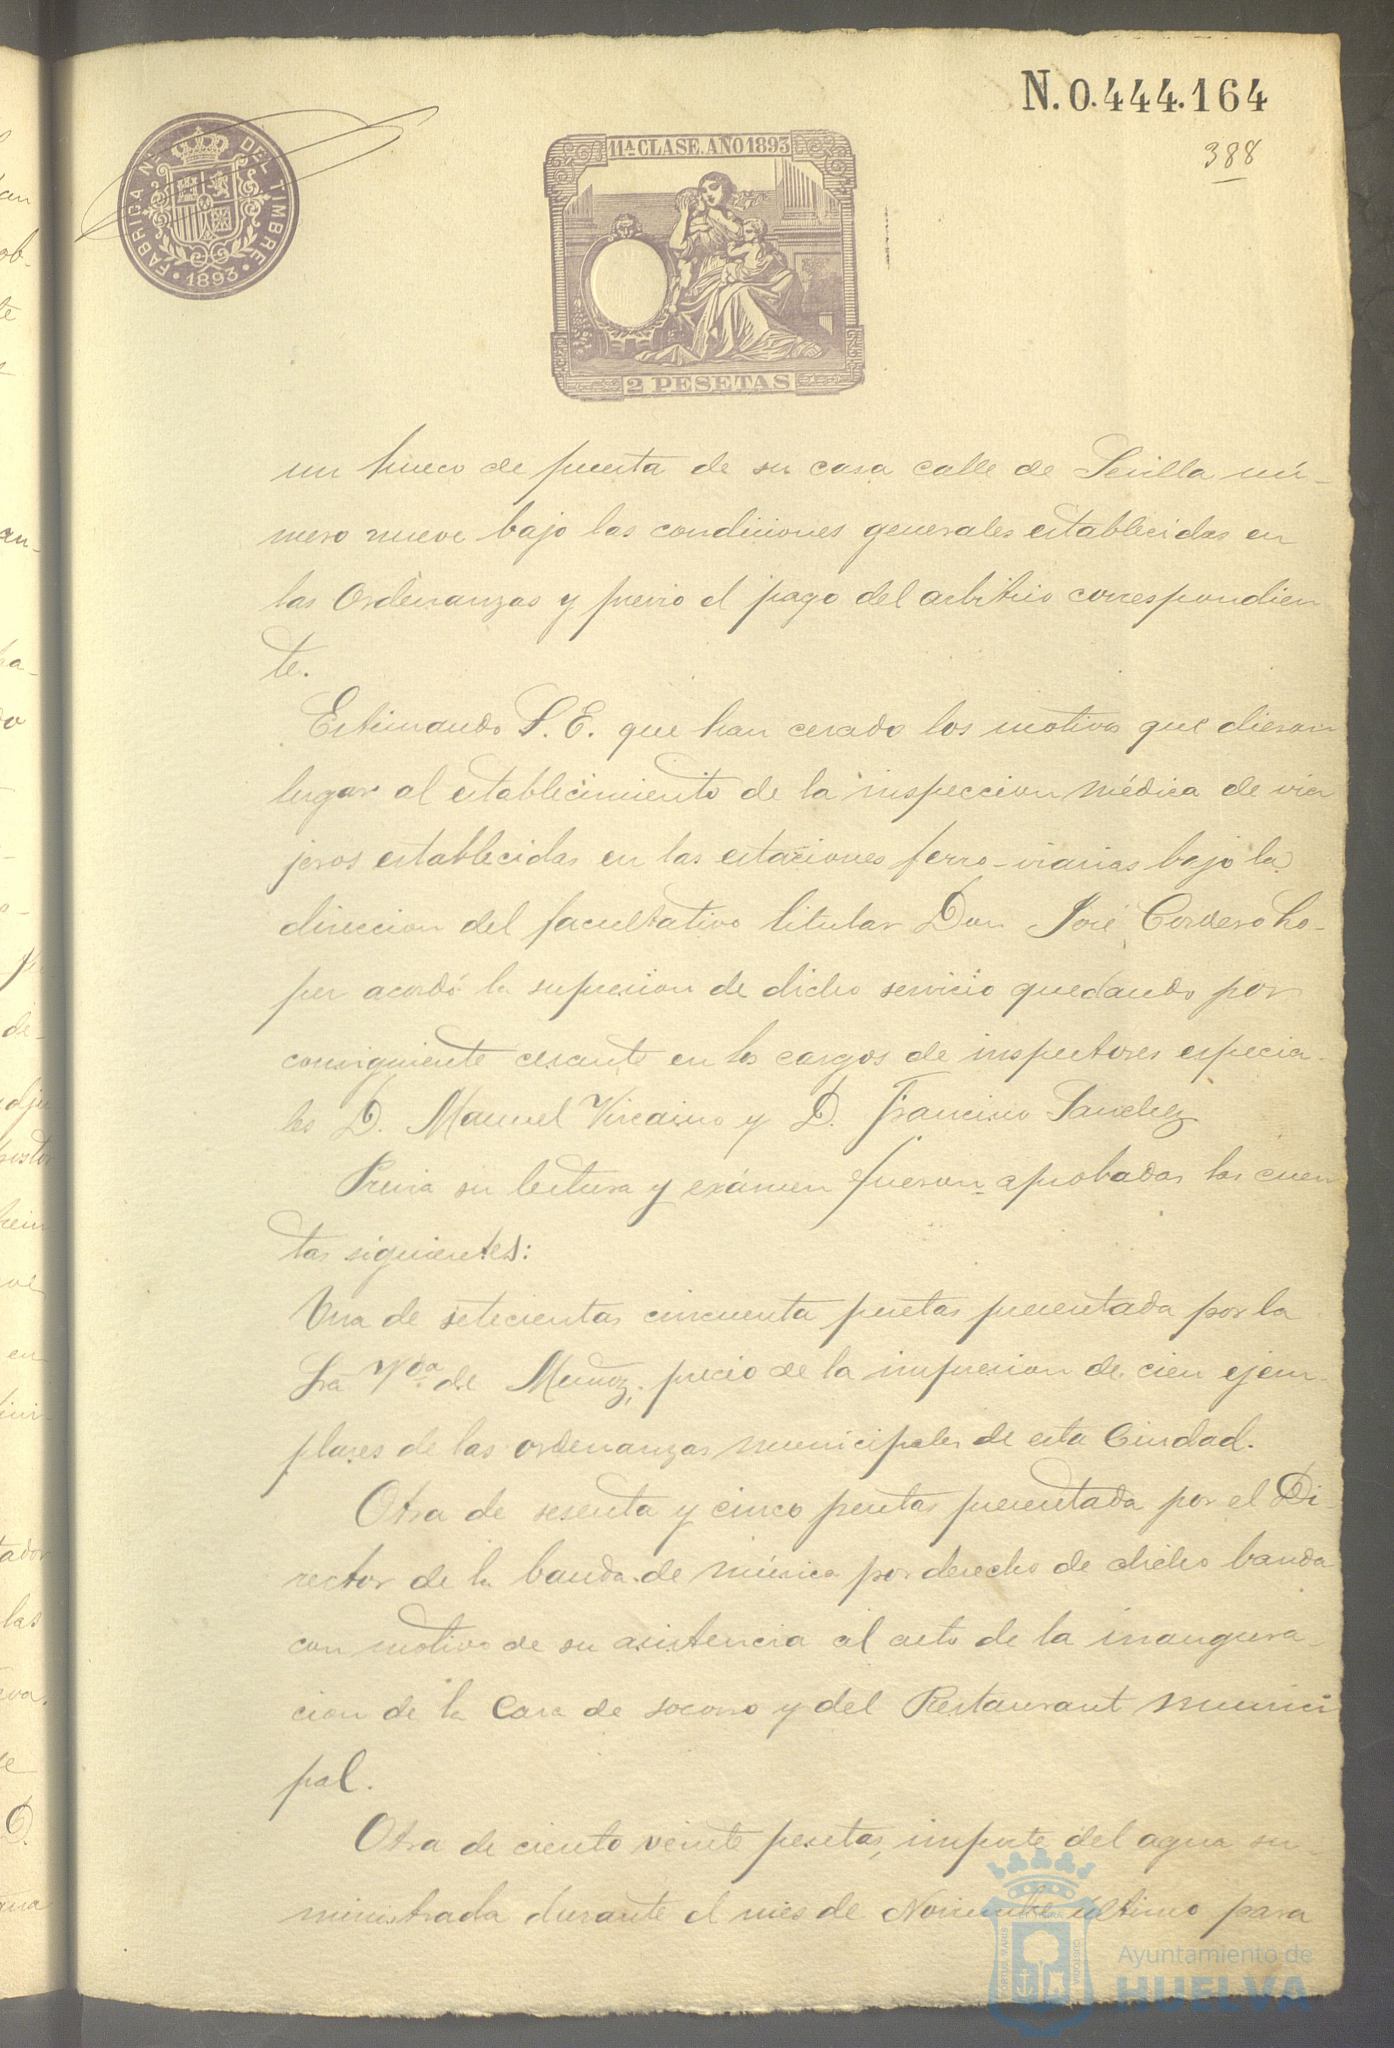 N.0.444.164
388
FABRICA NAL DEL TIMBRE
1893
11ª CLASE. AÑO 1893
2 PESETAS
un hueco de puerta de su casa calle de Sevilla nú-
mero nueve bajo las condiciones generales establecidas en
las Ordenanzas y previo el pago del arbitrio correspondien
te.
Estimando S. E. que han cesado los motivos que dieron
lugar al establecimiento de la inspeccion médica de via
jeros establecidas en las estaciones ferro-viarias bajo la
direccion del facultativo titular Don José Cordero Lo-
pez acordó la supresion de dicho servicio quedando por
consiguiente cesante en los cargos de inspectores especia-
les D. Manuel Vizcaino y D. Francisco Sanchez
Previa su lectura y exámen fueron aprobadas las cuen
tas siguientes:
Una de setecientas cincuenta pesetas presentada por la
Sra Vda. de Muñoz, precio de la impresion de cien ejem-
plares de las ordenanzas municipales de esta Ciudad.
Otra de sesenta y cinco pesetas presentada por el Di-
rector de la banda de música por derecho de dicho banda
con motivo de su asistencia al acto de la inaugura-
cion de la Casa de socorro y del Restaurant munici
pal.
Otra de ciento veinte pesetas, importe del agua su-
ministrada durante el mes de Noviembre último para
Ayuntamiento de
HUELVA